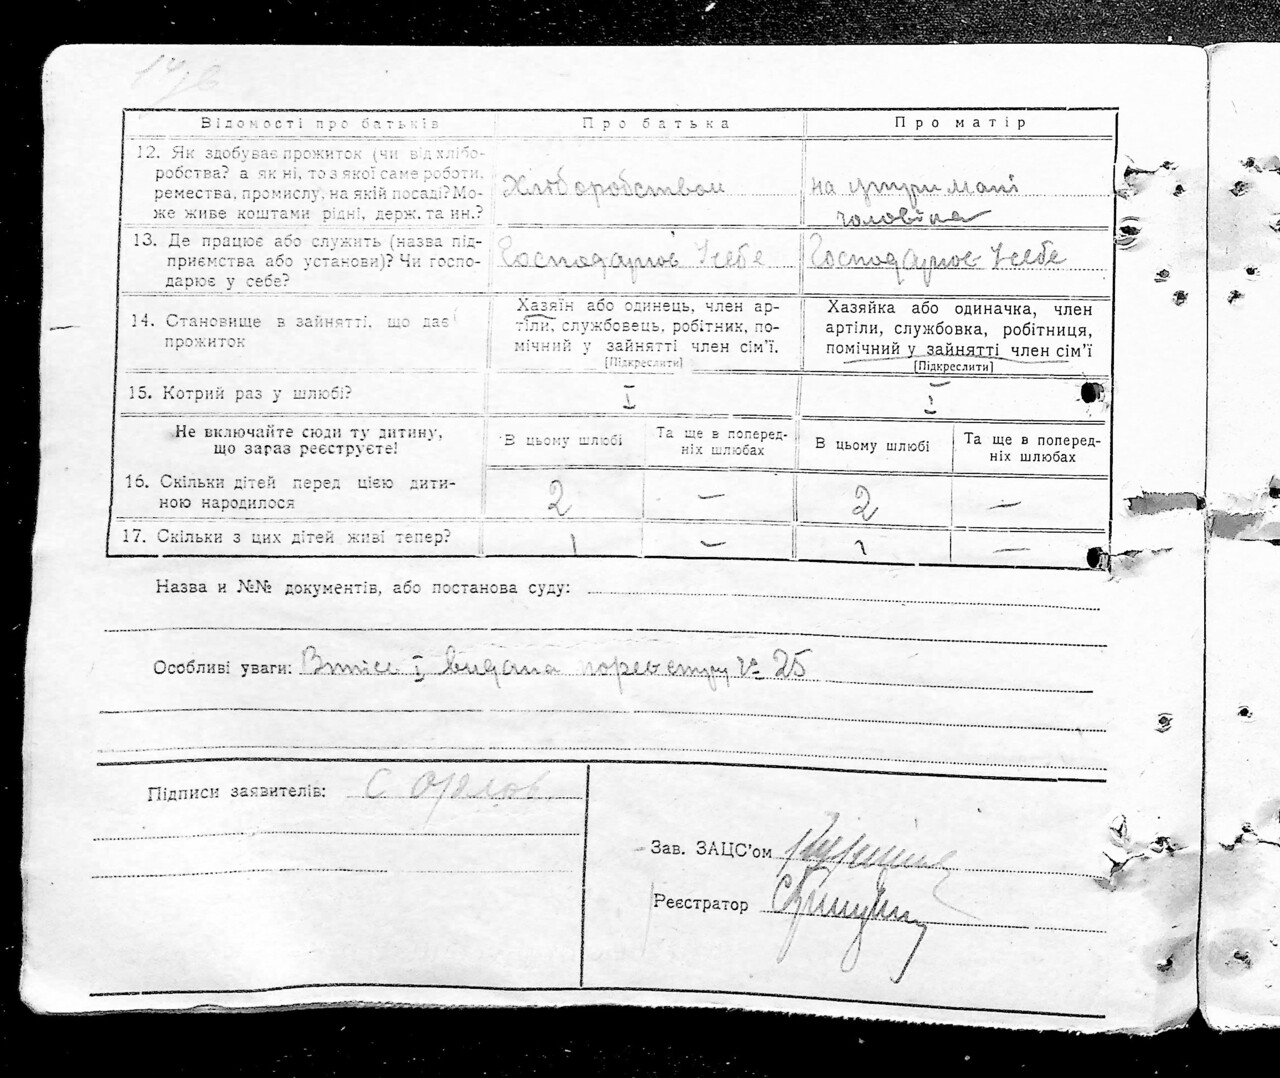 14/в
Відомості про батьків
Про батька
Про матір
12. Як здобуває прожиток (чи від хлібо-
робства? а як ні, то з якої саме роботи,
ремества, промислу, на якій посаді? Мо-
же живе коштами рідні, держ. та ин.?
Хліборобством
на утримані
чоловіка
13. Де працює або служить (назва під-
приємства або установи)? Чи госпо-
дарює у себе?
Господарює У себе
Господарює У себе
14. Становище в зайнятті, що дає
прожиток
Хазяїн або одинець, член ар-
тіли, службовець, робітник, по-
мічний у зайнятті член сім’ї.
[Підкреслити]
Хазяйка або одиначка, член
артіли, службовка, робітниця,
помічний у зайнятті член сім’ї
[Підкреслити]
15. Котрий раз у шлюбі?
I
I
Не включайте сюди ту дитину,
що зараз реєструєте!
В цьому шлюбі
Та ще в поперед-
ніх шлюбах
В цьому шлюбі
Та ще в поперед-
ніх шлюбах
16. Скільки дітей перед цією дити-
ною народилося
2
—
2
—
17. Скільки з цих дітей живі тепер?
1
—
1
—
Назва и №№ документів, або постанова суду:
Особливі уваги: видана по реєстру № 25
Підписи заявителів: С Орлов
Зав. ЗАЦС’ом
Реєстратор